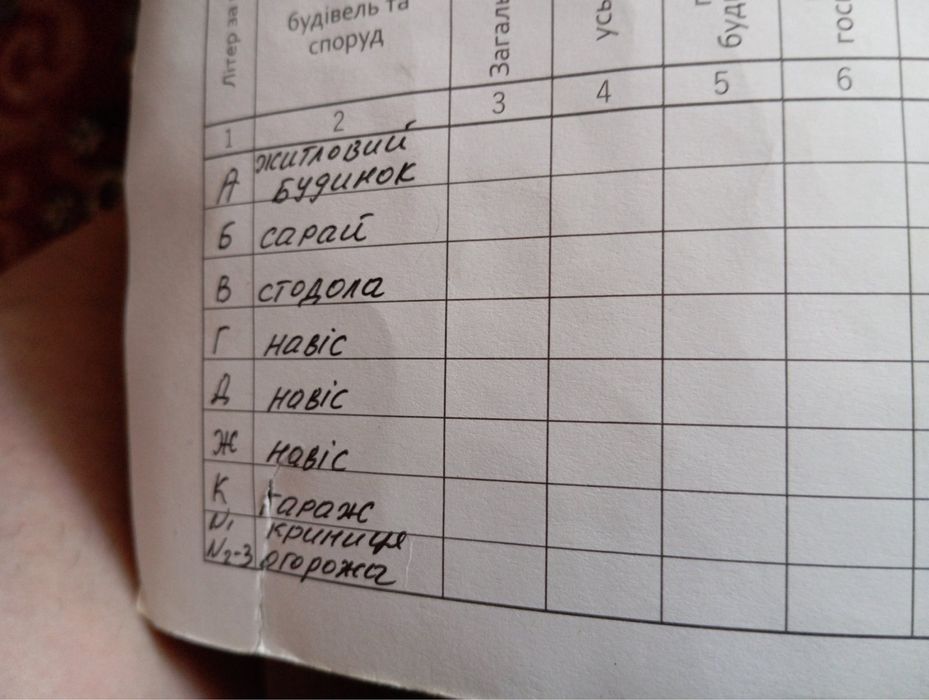 Літер за
будівель та
споруд
Загаль
усь
буді
госп
1 2 3 4 5 6
А житловий
будинок
Б сарай
В стодола
Г навіс
Д навіс
Ж навіс
К гараж
N1 криниця
N2-3 огорожа